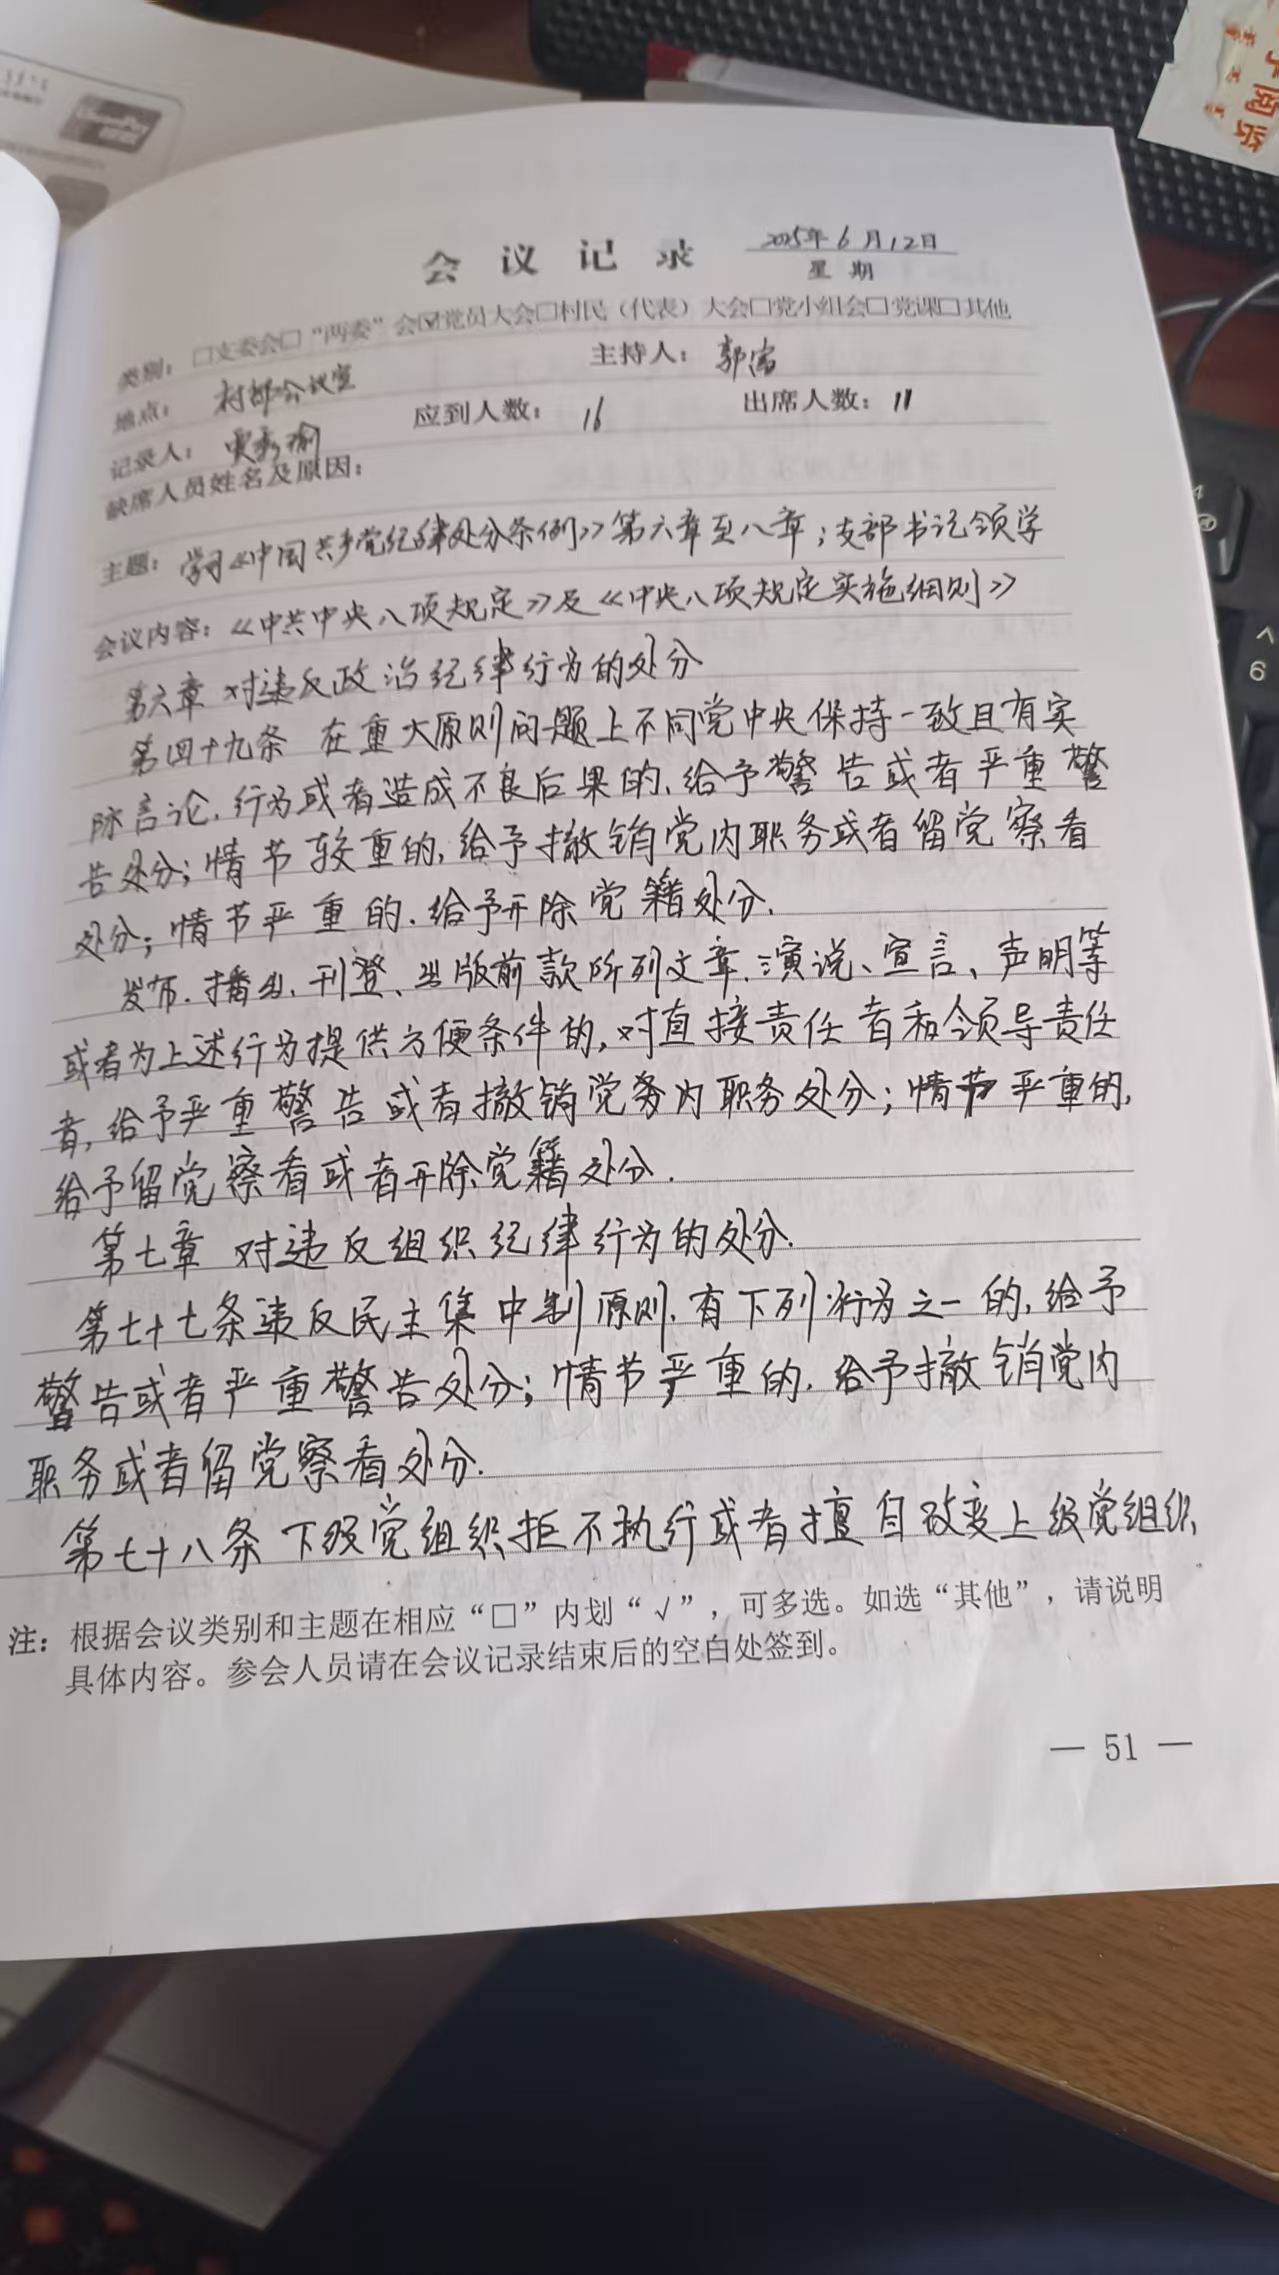 会议记录 2025年6月12日
星期
类别：□支委会□“两委”会☑党员大会□村民（代表）大会□党小组会□党课□其他
地点：村部会议室 主持人：郭富
记录人： 应到人数：16 出席人数：11
缺席人员姓名及原因：
主题：学习《中国共产党纪律处分条例》第六章至八章；支部书记领学
会议内容：《中共中央八项规定》及《中央八项规定实施细则》
第六章 对违反政治纪律行为的处分
第四十九条 在重大原则问题上不同党中央保持一致且有实
际言论、行为或者造成不良后果的，给予警告或者严重警
告处分；情节较重的，给予撤销党内职务或者留党察看
处分；情节严重的，给予开除党籍处分。
发布、播出、刊登、出版前款所列文章、演说、宣言、声明等
或者为上述行为提供方便条件的，对直接责任者和领导责任
者，给予严重警告或者撤销党务内职务处分；情节严重的，
给予留党察看或者开除党籍处分。
第七章 对违反组织纪律行为的处分。
第七十七条违反民主集中制原则，有下列行为之一的，给予
警告或者严重警告处分；情节严重的，给予撤销党内
职务或者留党察看处分。
第七十八条 下级党组织拒不执行或者擅自改变上级党组织
注：根据会议类别和主题在相应“□”内划“√”，可多选。如选“其他”，请说明
具体内容。参会人员请在会议记录结束后的空白处签到。
— 51 —